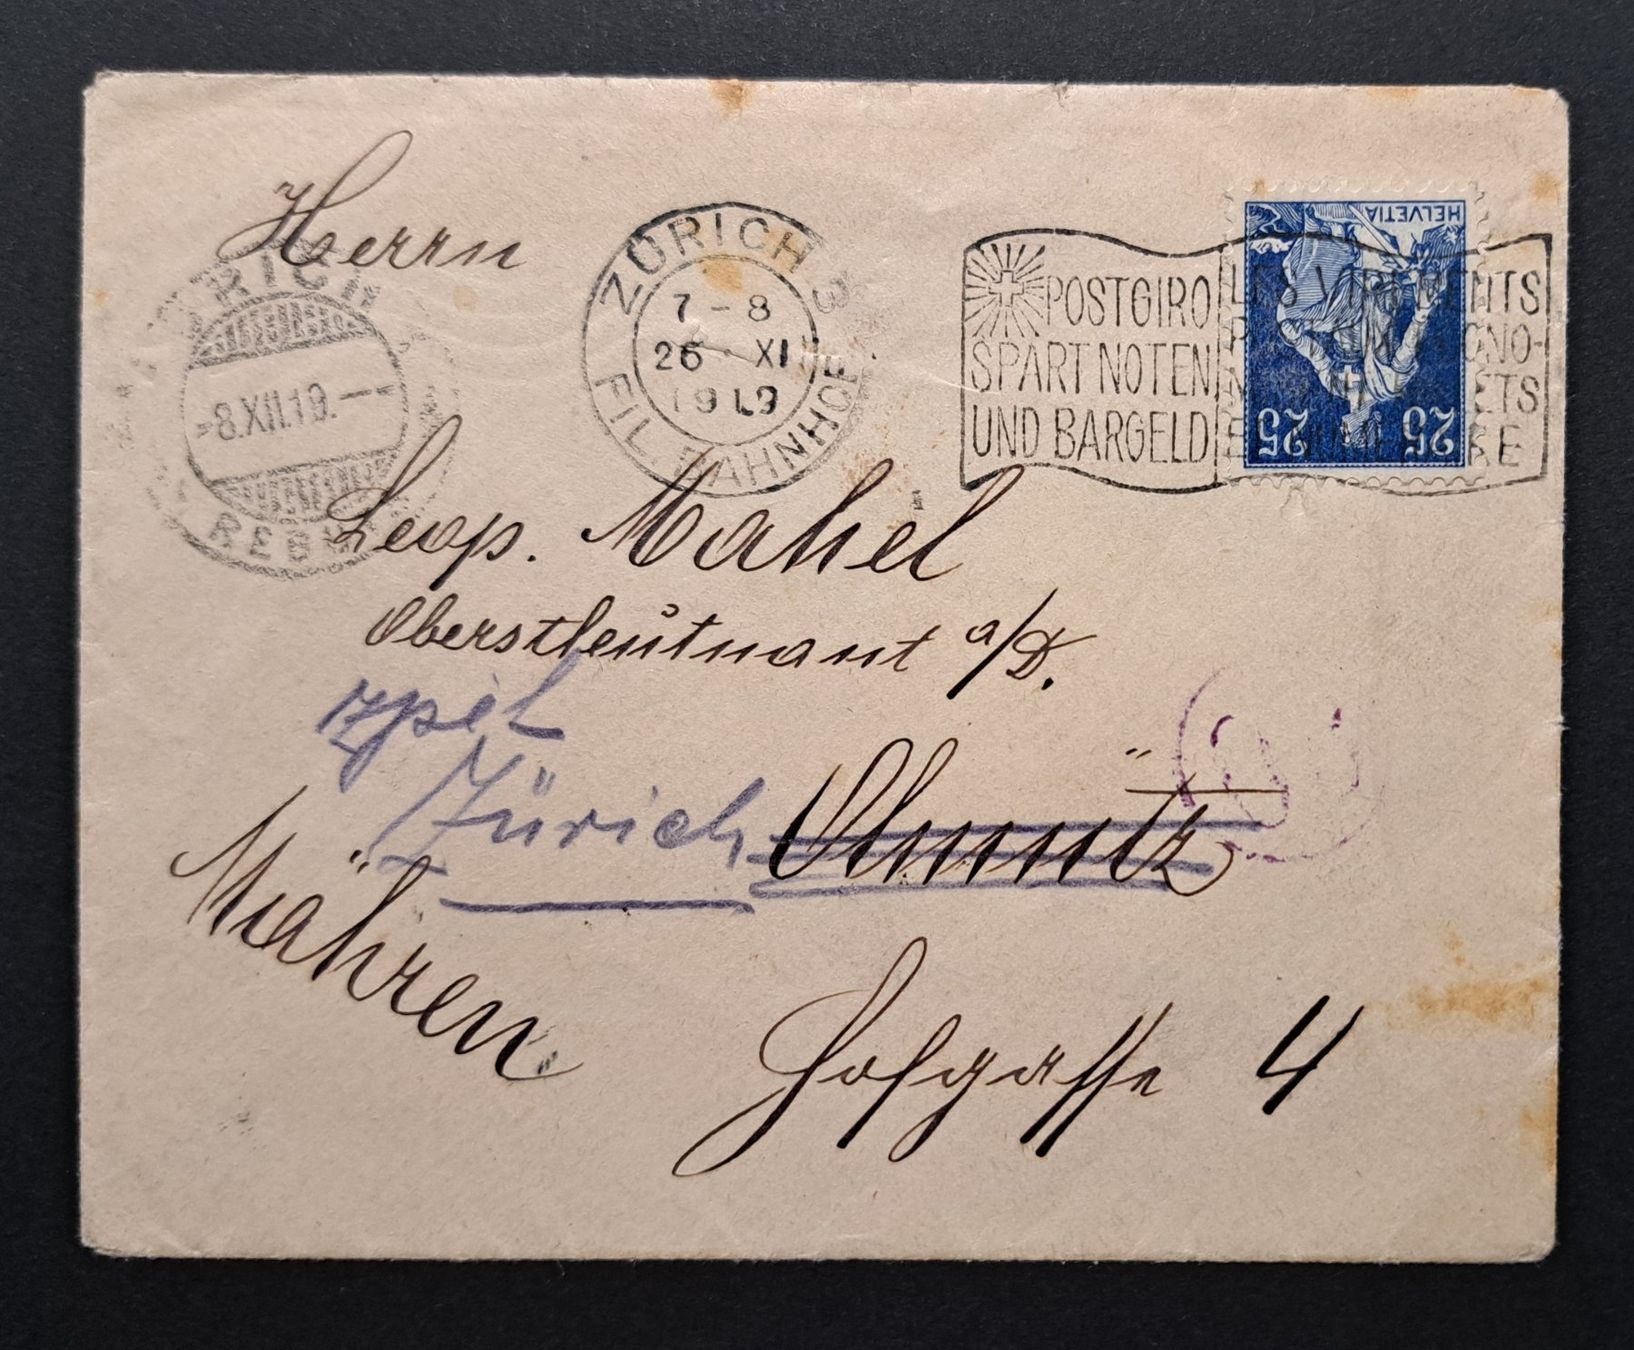 Herrn
ZÜRICH 3
7-8
26. XI
1919
FIL. BAHNHOF
POSTGIRO
SPART NOTEN
UND BARGELD
HELVETIA
25 25
ZÜRICH
-8.XII.19.-
Leop. Mahel
Oberstleutnant a/D.
zpět
Zürich
Olmütz
Mähren
Hofgasse 4